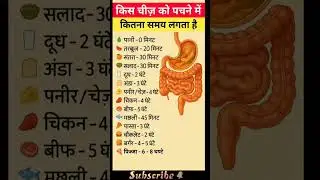 किस चीज़ को पचने में
कितना समय लगता है
पानी - 0 मिनट
तरबूज - 20 मिनट
संतरा - 30 मिनट
सलाद - 30 मिनट
दूध - 2 घंटे
अंडा - 3 घंटे
पनीर/चेज़ - 4 घंटे
चिकन - 4 घंटे
बीफ - 5 घंटे
मछली - 45 मिनट
पास्ता - 3 घंटे
चॉकलेट - 2 घंटे
बर्गर - 4-5 घंटे
पिज्जा - 6 - 8 घण्टे
Subscribe
सलाद-30
दूध - 2 घंटे
अंडा - 3
पनीर/चेज़
चिकन-4
बीफ - 5
मछली - 4